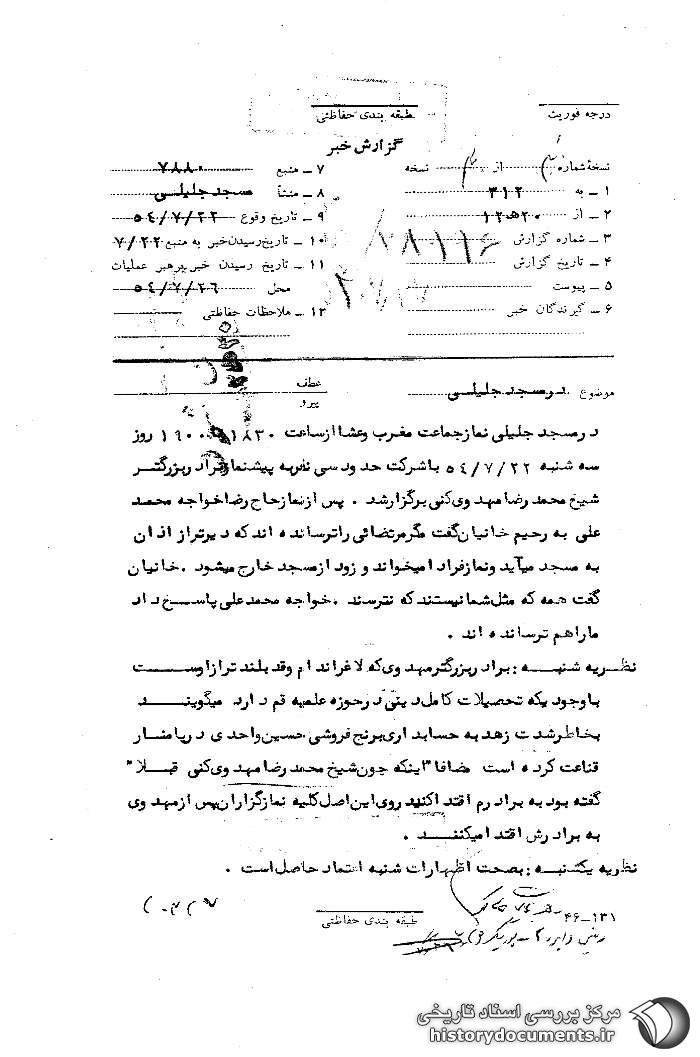 درجه فوریت
طبقه بندی حفاظتی
گزارش خبر
نسخهٔ شماره از نسخه
۱ – به ۳۱۲
۲ – از ۲۰ ه‍ ۱۲
۳ – شماره گزارش
۴ – تاریخ گزارش
۵ – پیوست
۶ – گیرندگان خبر
۷ – منبع ۷۸۸۰
۸ – منشأ مسجد جلیلی
۹ – تاریخ وقوع ۵۴/۷/۲۲
۱۰ – تاریخ رسیدن خبر به منبع ۷/۲۲
۱۱ – تاریخ رسیدن خبر برهبر عملیات
محل ۵۴/۷/۲۶
۱۲ – ملاحظات حفاظتی
موضوع در مسجد جلیلی
عطف
پیرو
در مسجد جلیلی نماز جماعت مغرب و عشا از ساعت ۱۸۳۰ ۱۹۰۰ روز
سه شنبه ۵۴/۷/۲۲ با شرکت حدود سی نفر به پیشنمازی برادر بزرگتر
شیخ محمد رضا مهدوی کنی برگزار شد . پس از نماز حاج رضا خواجه محمد
علی به رحیم خانیان گفت مگر مرتضائی را ترسانده اند که دیرتر از اذان
به مسجد میآید و نماز فرادا میخواند و زود از مسجد خارج میشود . خانیان
گفت همه که مثل شما نیستند که نترسند . خواجه محمد علی پاسخ داد
ما را هم ترسانده اند .
نظریه شنبه : برادر بزرگتر مهدوی که لاغر اندام و قد بلند تر از اوست
با وجودیکه تحصیلات کامل دینی در حوزه علمیه قم دارد میگویند
بخاطر شدت زهد به حسابداری برنج فروشی حسین واحدی در پامنار
قناعت کرده است مضافا" اینکه چون شیخ محمد رضا مهدوی کنی قبلا"
گفته بود به برادرم اقتدا کنید روی این اصل کلیه نمازگزاران پس از مهدوی
به برادرش اقتدا میکنند .
نظریه یکشنبه : بصحت اظهارات شنبه اعتماد حاصل است .
۴۶–۱۳۱
طبقه بندی حفاظتی
مرکز بررسی اسناد تاریخی
historydocuments.ir